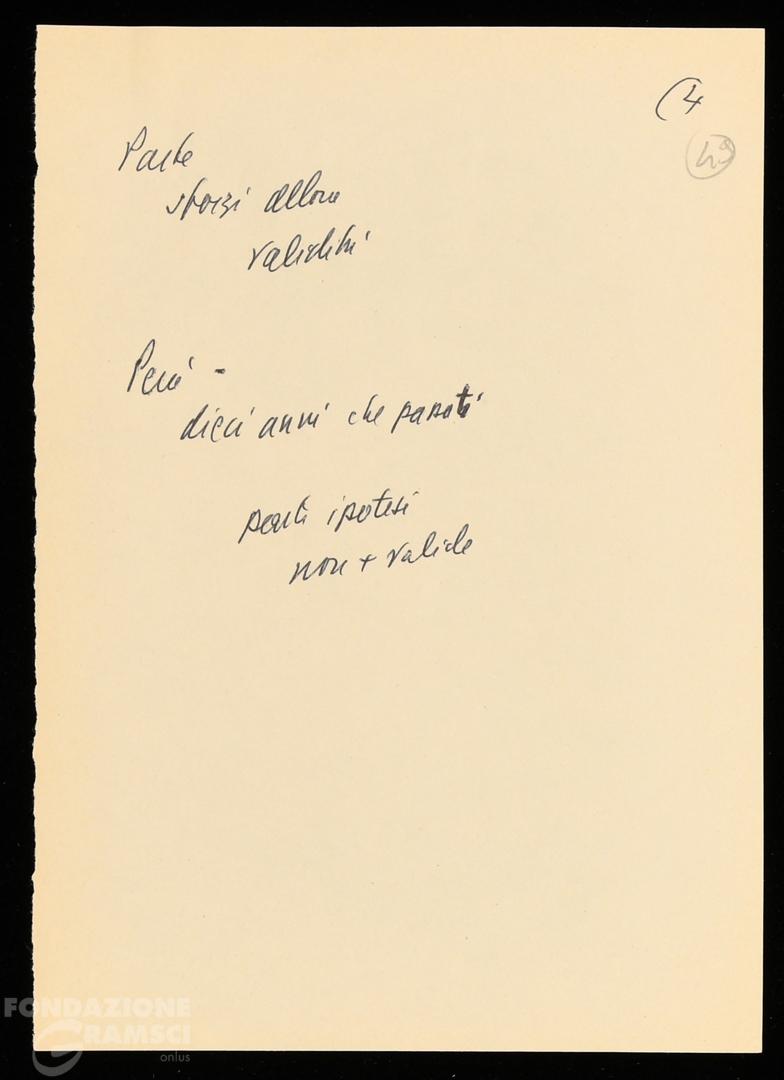 (4
49
Parte
sforzi allora
validità
Però -
dieci anni che passati
parte ipotesi
non + valide
FONDAZIONE
GRAMSCI
onlus